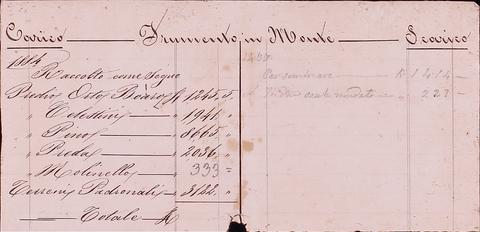 Carico Frumento in Monte Scarico
1814
Raccolto come segue
Predio Orto Bòaro K 1245. 5.
„ Celestini „ 1941 „
„ Pino „ 8665 „
„ Preda „ 2036 „
„ Molinello 333 =
Terreni Padronali „ 3122. „
Totale K
Per seminare K 1414 —
227 —